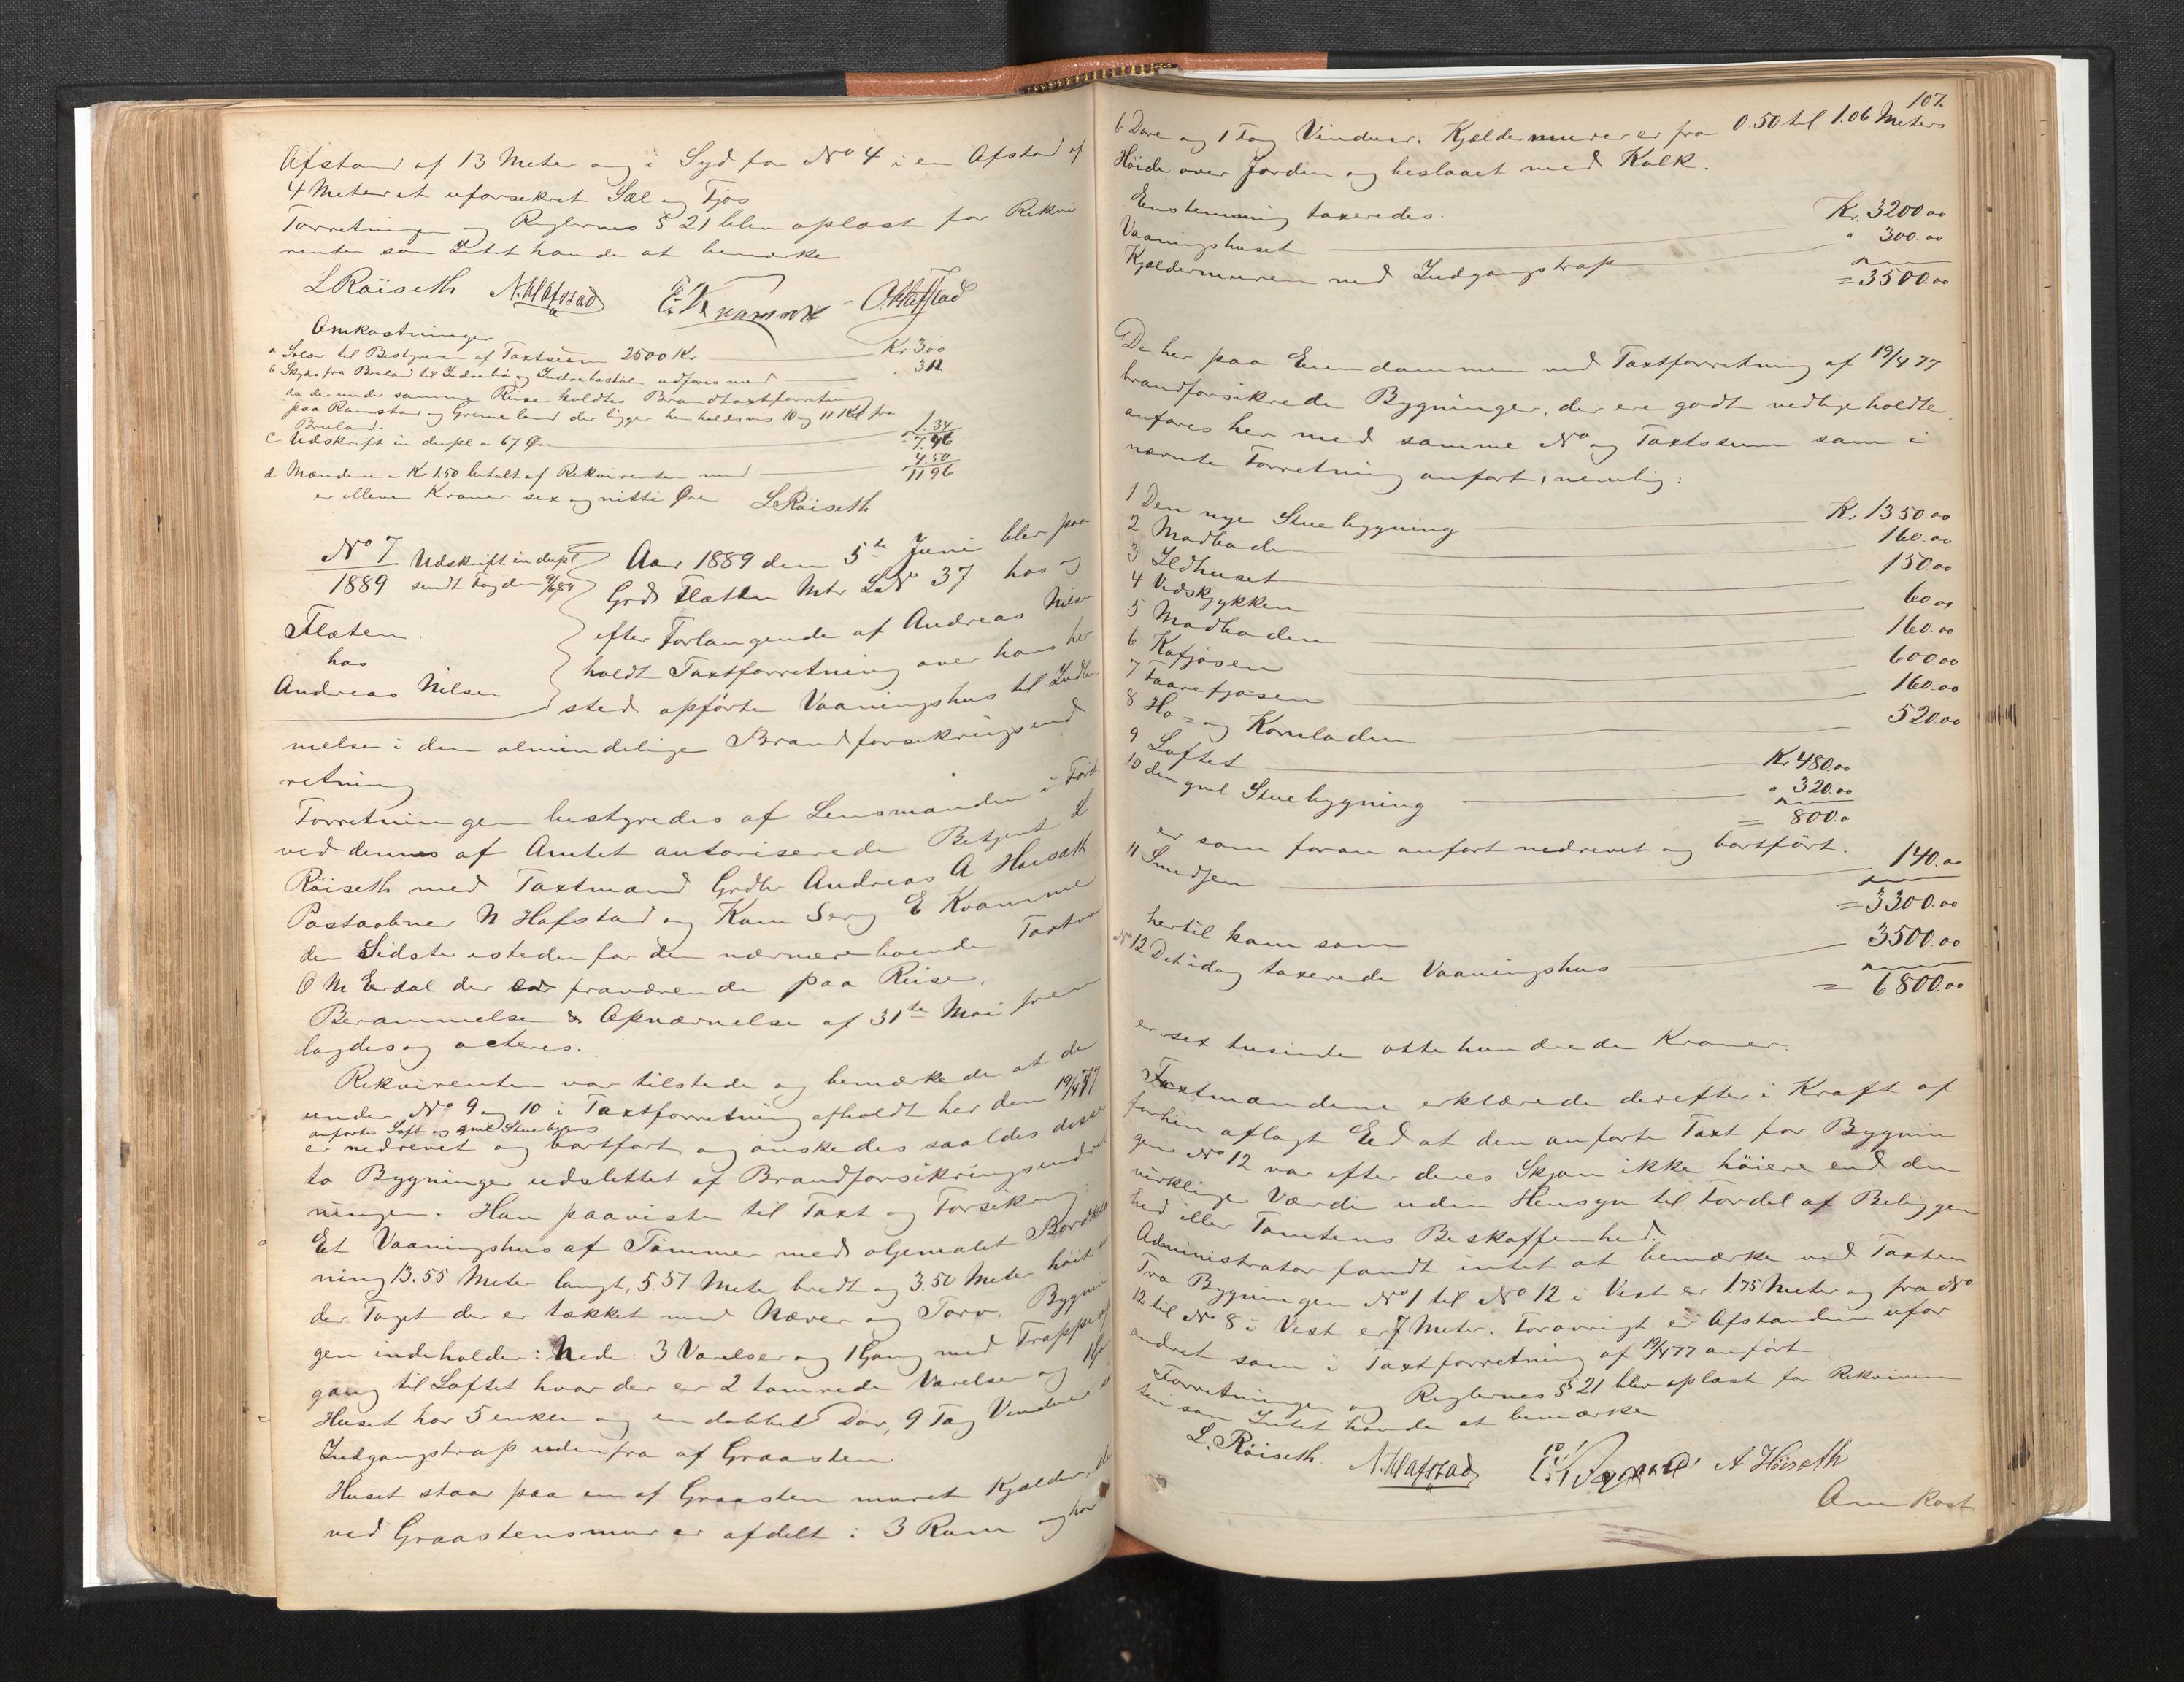 Afstand af 13 Meter og i Syd for No 4 i en Afstand af
4 Meter et uforsekret Sæl og Fjøs
Forretningen og Reglernes § 21 blev oplæst for Rekvi
renten som Intet havde at bemærke
L Røiseth N. Hafstad E. Kvamme O. Hafstad
Omkostninger
a Salær til Bestyreren af Taxtsum 2500 Kr Kr 3.00
b Skyds fra Bruland til Indrebø og Indrebøstøl udføres med 3.12
da der under samme Reise holdtes Brandtaxtforretning
paa Ramstad og Grimeland der ligger henholdsvis 10 og 11 Kil fra
Bruland.
c Udskrift in dupl a 67 Øre 1.34
7.46
d Mændene a Kr 1.50 betalt af Rekvirenten med 4.50
11.96
er elleve Kroner sex og nitti Øre L Røiseth
No 7 Udskrift in dupl
1889 sendt Fogden 9/6 89
Flæten.
hos
Andreas Nilsen
Aar 1889 den 5te Juni blev paa
Grd Flæten Mtr LNo 37 hos og
efter Forlangende af Andreas Nilsen
holdt Taxtforretning over hans her
sted opførte Vaaningshus til Indlem
melse i den almindelige Brandforsekringsind
retning
Forretningen bestyredes af Lensmanden i Førde
ved dennes af Amtet autoriserede Betjent L
Røiseth med Taxtmænd Grdbr Andreas A Høisæth
Postaabner N Hafstad og Kom Serg E Kvamme
den Sidste istedenfor den nærmere boende Taxtm
O M Erdal der er fraværende paa Reise.
Berammelse & Opnævnelse af 31te Mai frem
lagdes og acteres.
Rekvirenten var tilstede og bemærkede at de
under No 9 og 10 i Taxtforretning afholdt her den 19/4 77
anførte Loft og gml Stuebygns
er nedrevet og bortført og ønskedes saaledes disse
to Bygninger udslettet af Brandforsikringsindret
ningen. Han paaviste til Taxt og Forsikring
Et Vaaningshus af Tømmer med oljemalet Bordklæd
ning 13.55 Meter langt, 5.57 Meter bredt og 3.50 Meter høit un
der Taget der er tækket med Næver og Torv. Bygnin
gen indeholder: Nede: 3 Værelser og 1 Gang med Trappeop
gang til Loftet hvor der er 2 tømrede Værelser og 1 Gang
Huset har 5 enkle og en dobbelt Dør, 9 Fag Vinduer
Indgangstrap udenfra af Graasten
Huset staar paa en af Graasten muret Kjælder, der
ved Graastensmur er afdelt i 3 Rum og har
107.
6 Døre og 1 Fag Vinduer. Kjældermurer er fra 0.50 til 1.06 Meters
Høide over Jorden og beslaaet med Kalk.
Enstemning taxeredes.
Vaaningshuset Kr. 3200.00
Kjældermuren med Indgangstrap " 300.00
= 3500.00
De her paa Eiendommen ved Taxtforretning af 19/4 77
brandforsikrede Bygninger, der ere godt vedligeholdte,
anføres her med samme No og Taxtssum som i
nævnte Forretning anført, nemlig:
1 Den nye Stuebygning Kr. 1350.00
2 Madboden 160.00
3 Ildhuset 150.00
4 Vedskjykken 60.00
5 Madboden 160.00
6 Kofjøsen 600.00
7 Faarefjøsen 160.00
8 Hø= og Kornladen 520.00
9 Loftet Kr 480.00
10 den gml Stuebygning " 320.00
= 800.0
er som foran anført nedrevet og bortført.
11 Smedjen 140.00
= 3300.00
hertil kom som
No 12 Det idag taxerede Vaaningshus 3500.00
= 6800.00
er sex tusinde otte hundrede Kroner.
Taxtmændene erklærede derefter i Kraft af
forhen aflagt Eed at den anførte Taxt for Bygnin
gen No 12 var efter deres Skjøn ikke høiere end den
virklige Værdi uden Hensyn til Fordel af Beliggen
hed eller Tomtens Beskaffenhed.
Administrator fandt intet at bemærke ved Taxten
Fra Bygningen No 1 til No 12 i Vest er 1.75 Meter og fra No
12 til No 8 i Vest er 7 Meter. Forøvrigt er Afstandene ufor
andret som i Taxtforretning af 19/4 77 anført
Forretningen og Reglernes § 21 blev oplæst for Rekviren
ten som Intet havde at bemærke
L. Røiseth. N. Hafstad E. Kvamme A Høiseth
Omkost